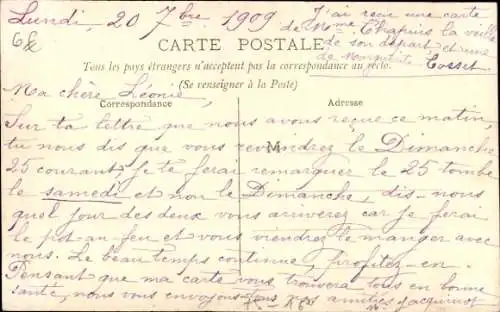 Lundi, 20 7bre 1909
J'ai reçu une carte
de Mme Chapuis la veille
de son départ et une
de Marguerite Cosset.
CARTE POSTALE
Tous les pays étrangers n'acceptent pas la correspondance au recto.
(Se renseigner à la Poste)
Ma chère Léonie,
Correspondance
Adresse
M
Sur ta lettre que nous avons reçue ce matin,
tu nous dis que vous reviendrez le Dimanche
25 courant, je te ferai remarquer le 25 tombe
le samedi et non le Dimanche, dis-nous
quel jour des deux vous arriverez car je ferai
le pot-au-feu et vous viendrez le manger avec
nous. Le beau temps continue, profitez-en.
Pensant que ma carte vous trouvera tous en bonne
santé, nous vous envoyons tous nos amitiés Jacquinot